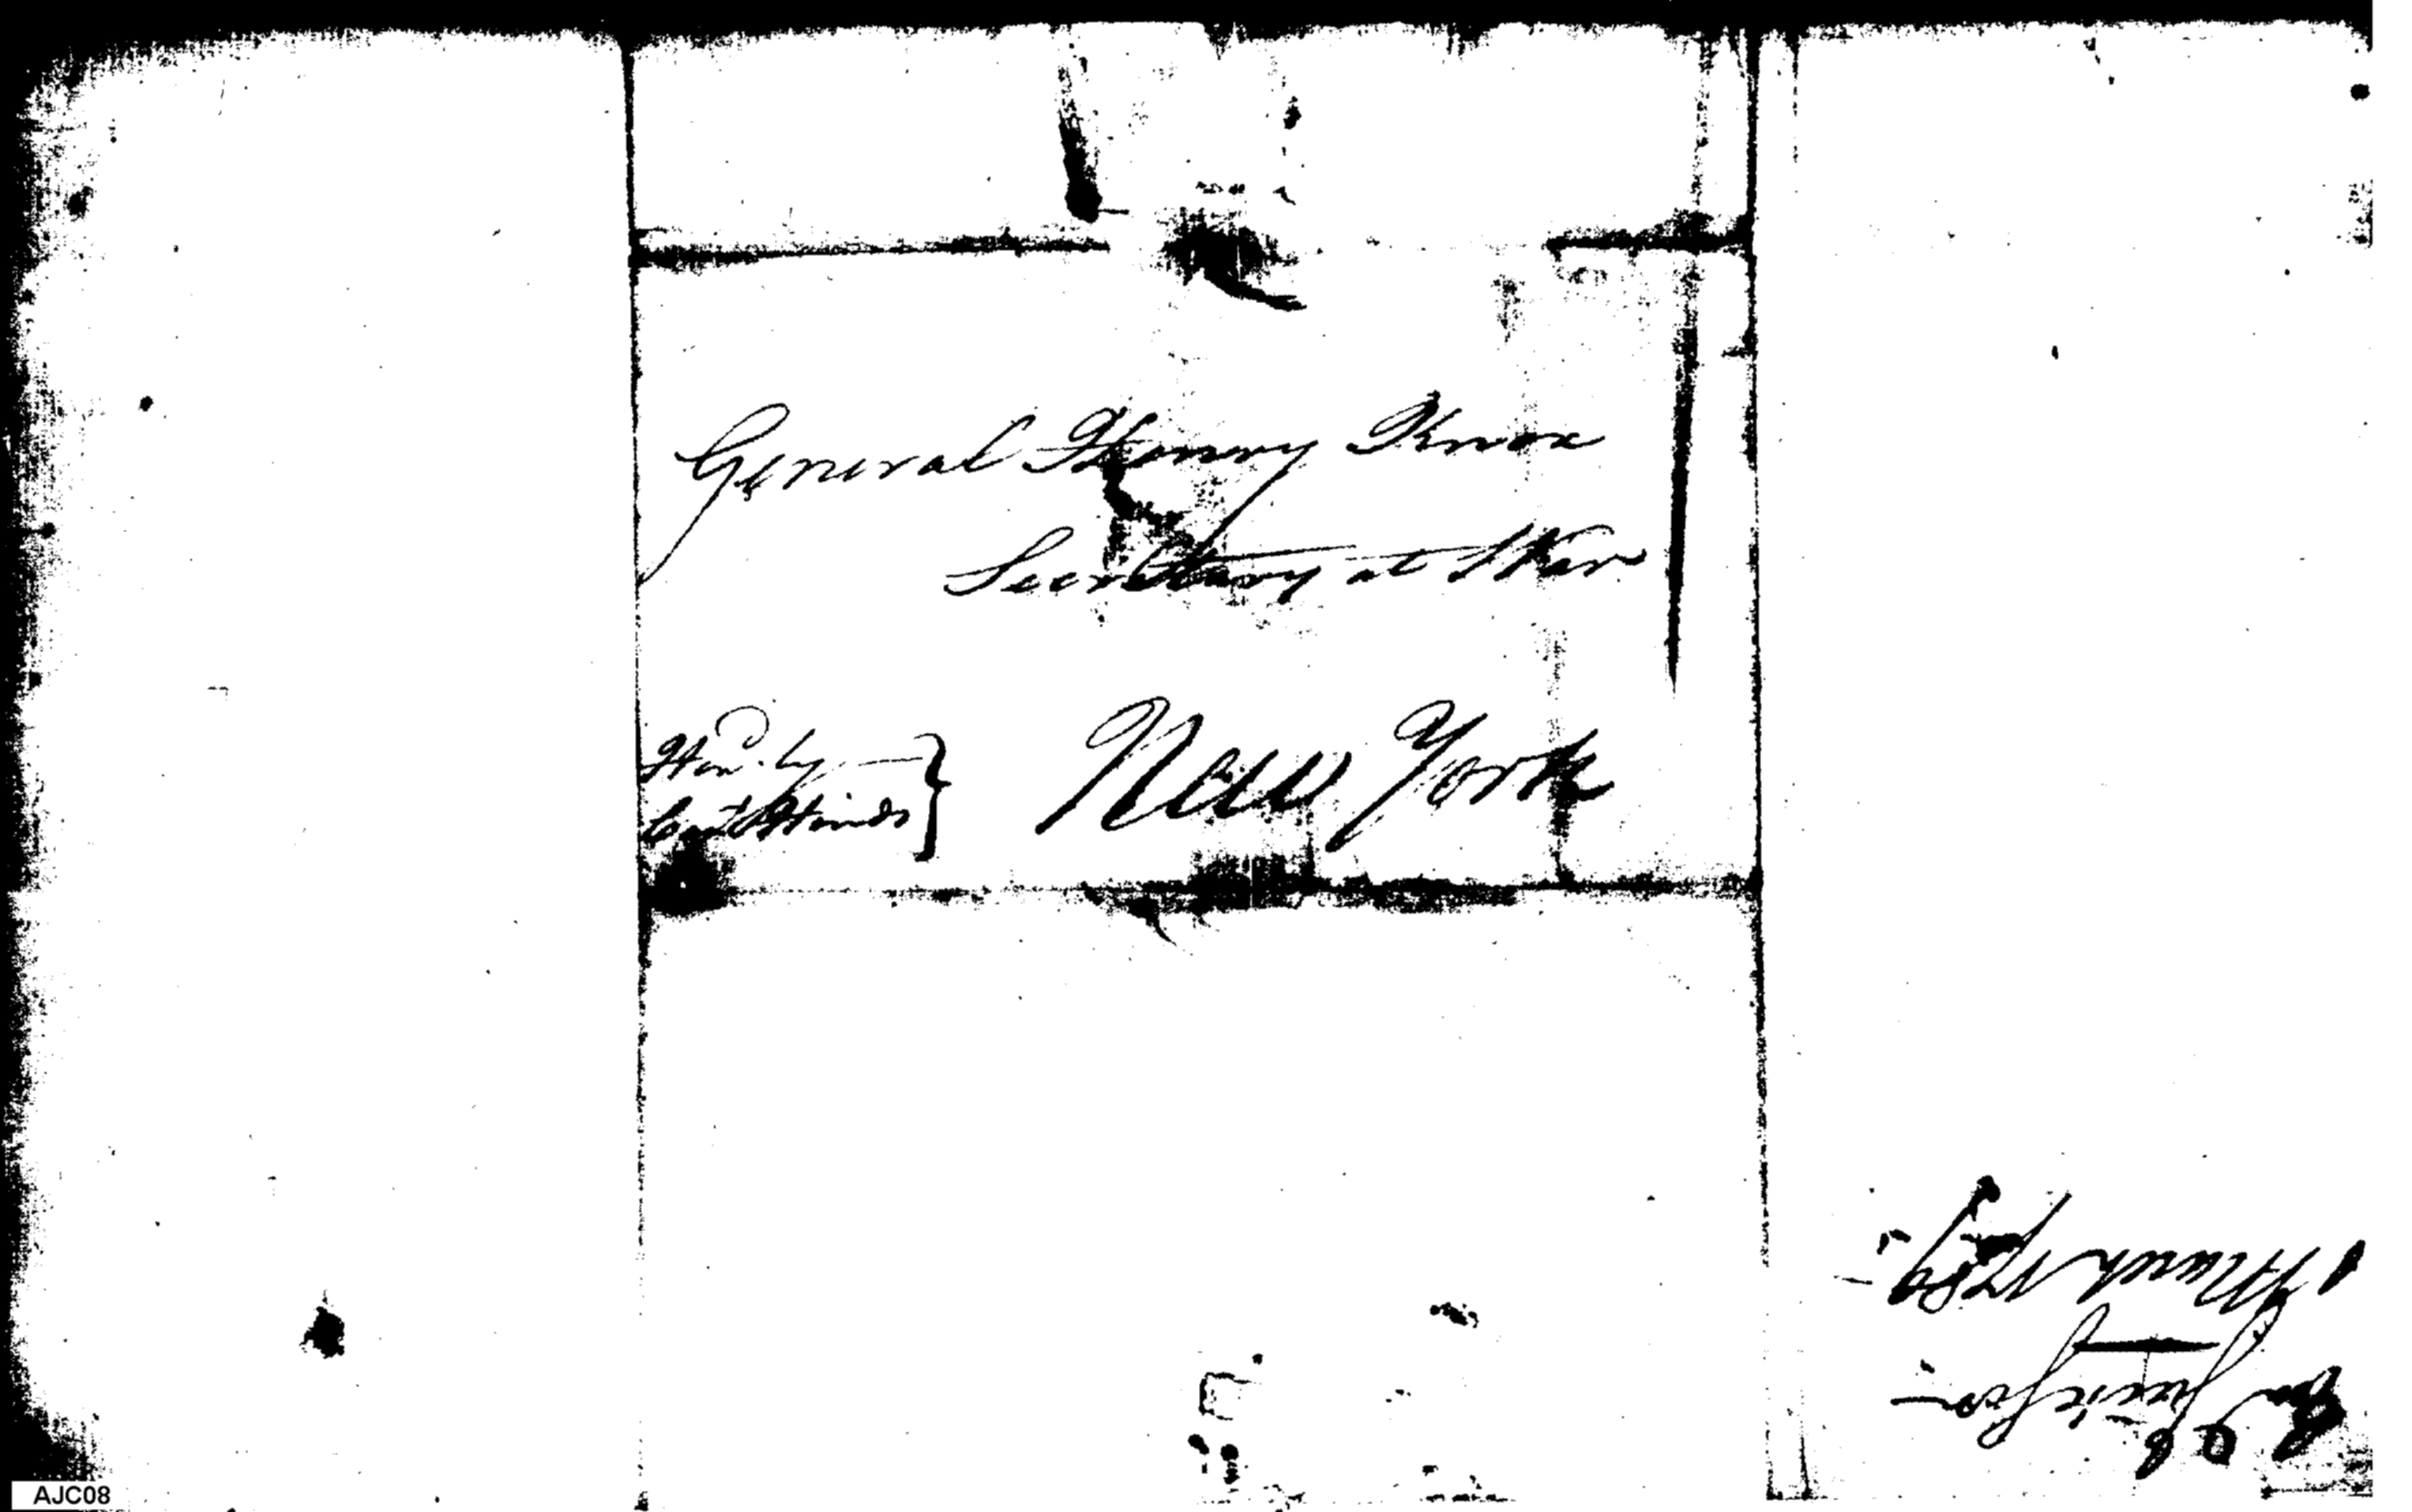 General Henry Knox
Secretary at War
New York
Hond. by
Capt Hinds
Jackson
1 March 1789
AJC08